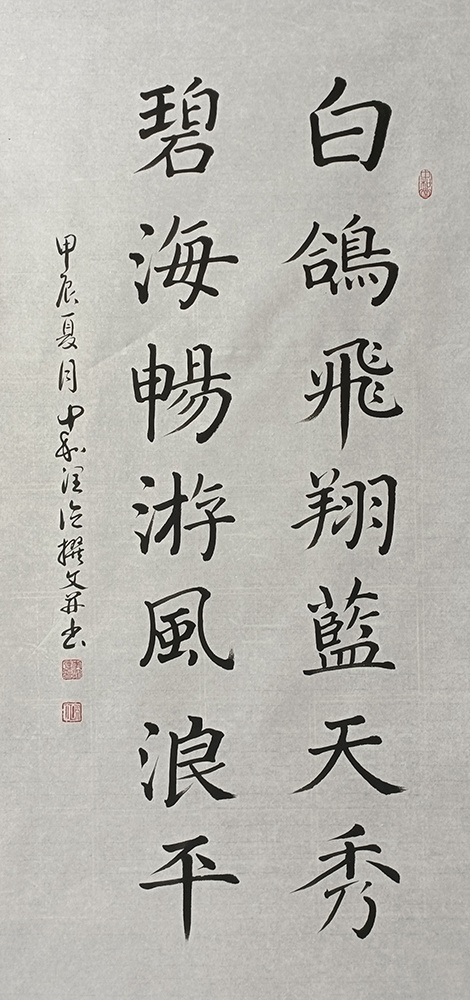 白鴿飛翔藍天秀
碧海暢游風浪平
甲辰夏月中和澤撰文并书